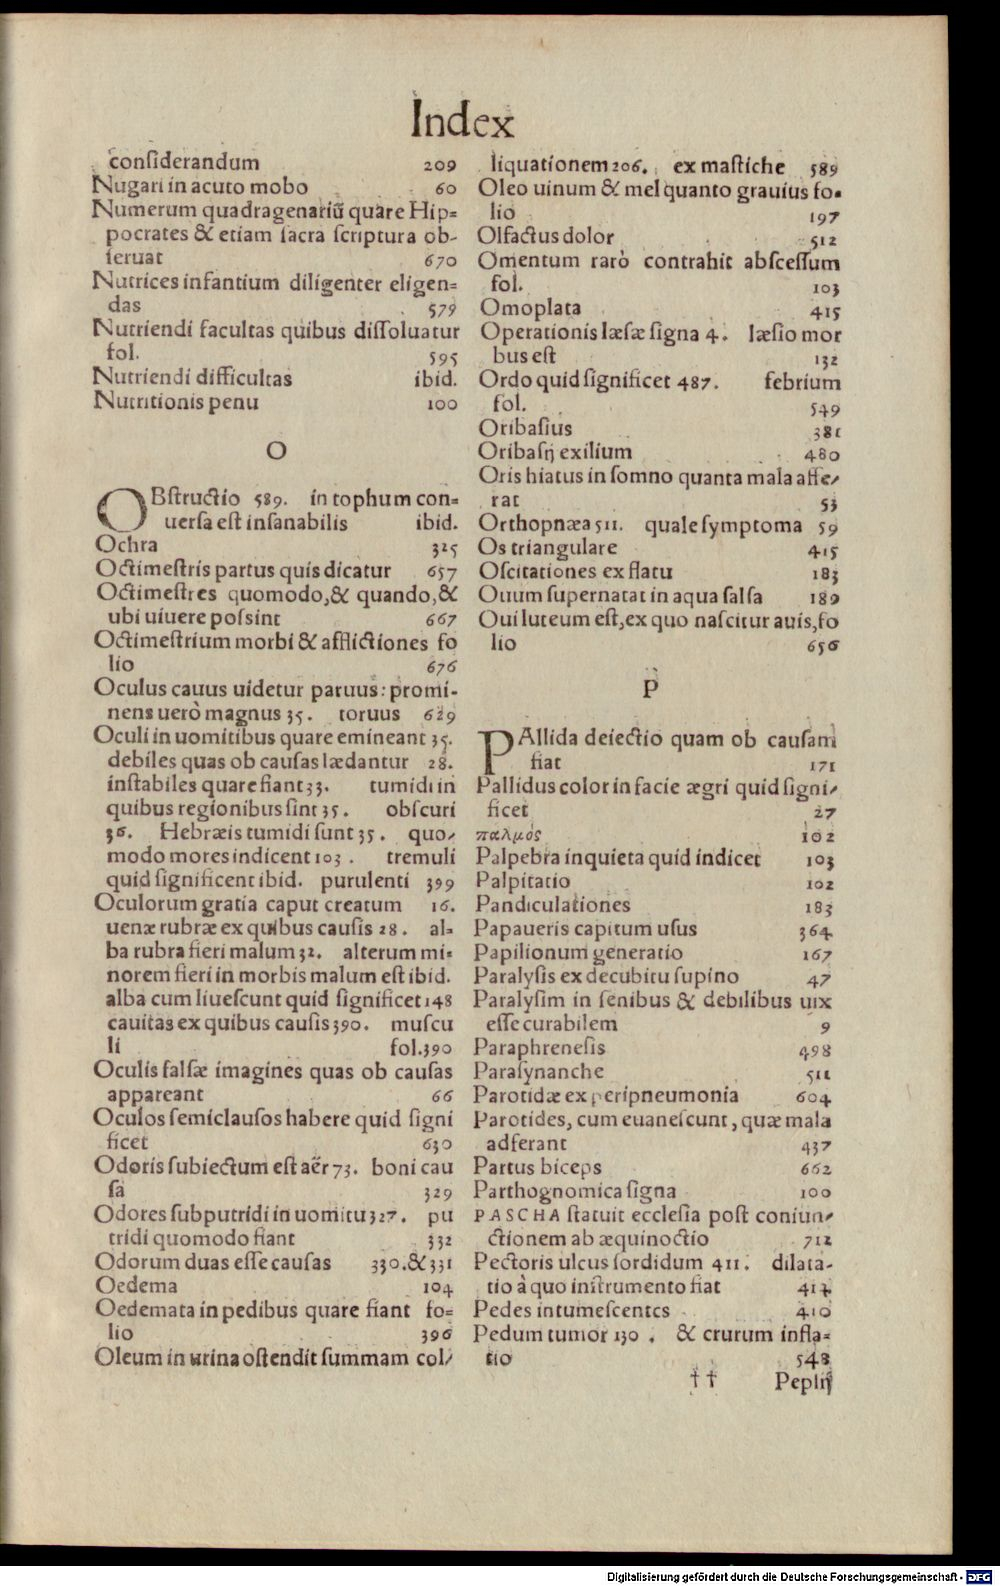 Index
conſiderandum 209
Nugari in acuto mobo 60
Numerum quadragenariũ quare Hip=
pocrates & etiam ſacra ſcriptura ob-
ſeruat 670
Nutrices infantium diligenter eligen=
das 579
Nutriendi facultas quibus diſſoluatur
fol. 595
Nutriendi difficultas ibid.
Nutritionis penu 100
O
OBſtructio 589. in tophum con=
uerſa eſt inſanabilis ibid.
Ochra 325
Octimeſtris partus quis dicatur 657
Octimeſtres quomodo,& quando,&
ubi uiuere poſsint 667
Octimeſtrium morbi & afflictiones fo
lio 676
Oculus cauus uidetur paruus: promi-
nens uerò magnus 35. toruus 629
Oculi in uomitibus quare emineant 35.
debiles quas ob cauſas lædantur 28.
inſtabiles quare fiant 33. tumidi in
quibus regionibus ſint 35. obſcuri
36. Hebræis tumidi ſunt 35. quo/
modo mores indicent 103. tremuli
quid ſignificent ibid. purulenti 399
Oculorum gratia caput creatum 16.
uenæ rubræ ex quibus cauſis 28. al=
ba rubra fieri malum 32. alterum mi=
norem fieri in morbis malum eſt ibid.
alba cum liueſcunt quid ſignificet 148
cauitas ex quibus cauſis 390. muſcu
li fol.390
Oculis falſæ imagines quas ob cauſas
appareant 66
Oculos ſemiclauſos habere quid ſigni
ficet 630
Odoris ſubiectum eſt aër 73. boni cau
ſa 329
Odores ſubputridi in uomitu 327. pu
tridi quomodo fiant 332
Odorum duas eſſe cauſas 330.&331
Oedema 104
Oedemata in pedibus quare fiant fo=
lio 396
Oleum in urina oſtendit ſummam col/
liquationem 206. ex maſtiche 589
Oleo uinum & mel quanto grauius fo=
lio 197
Olfactus dolor 512
Omentum rarò contrahit abſceſſum
fol. 103
Omoplata 415
Operationis læſæ ſigna 4. læſio mor
bus eſt 132
Ordo quid ſignificet 487. febrium
fol. 549
Oribaſius 381
Oribaſij exilium 480
Oris hiatus in ſomno quanta mala affe/
rat 53
Orthopnæa 511. quale ſymptoma 59
Os triangulare 415
Oſcitationes ex flatu 183
Ouum ſupernatat in aqua ſalſa 189
Oui luteum eſt,ex quo naſcitur auis,fo
lio 656
P
PAllida deiectio quam ob cauſam
fiat 171
Pallidus color in facie ægri quid ſigni/
ficet 27
παλμός 102
Palpebra inquieta quid indicet 103
Palpitatio 102
Pandiculationes 183
Papaueris capitum uſus 364
Papilionum generatio 167
Paralyſis ex decubitu ſupino 47
Paralyſim in ſenibus & debilibus uix
eſſe curabilem 9
Paraphreneſis 498
Paraſynanche 511
Parotidæ ex peripneumonia 604
Parotides, cum euaneſcunt, quæ mala
adferant 437
Partus biceps 662
Parthognomica ſigna 100
PASCHA ſtatuit eccleſia poſt coniun/
ctionem ab æquinoctio 712
Pectoris ulcus ſordidum 411. dilata-
tio à quo inſtrumento fiat 414
Pedes intumeſcentes 410
Pedum tumor 130. & crurum infla=
tio 548
†† Peplij
Digitalisierung gefördert durch die Deutsche Forschungsgemeinschaft - DFG